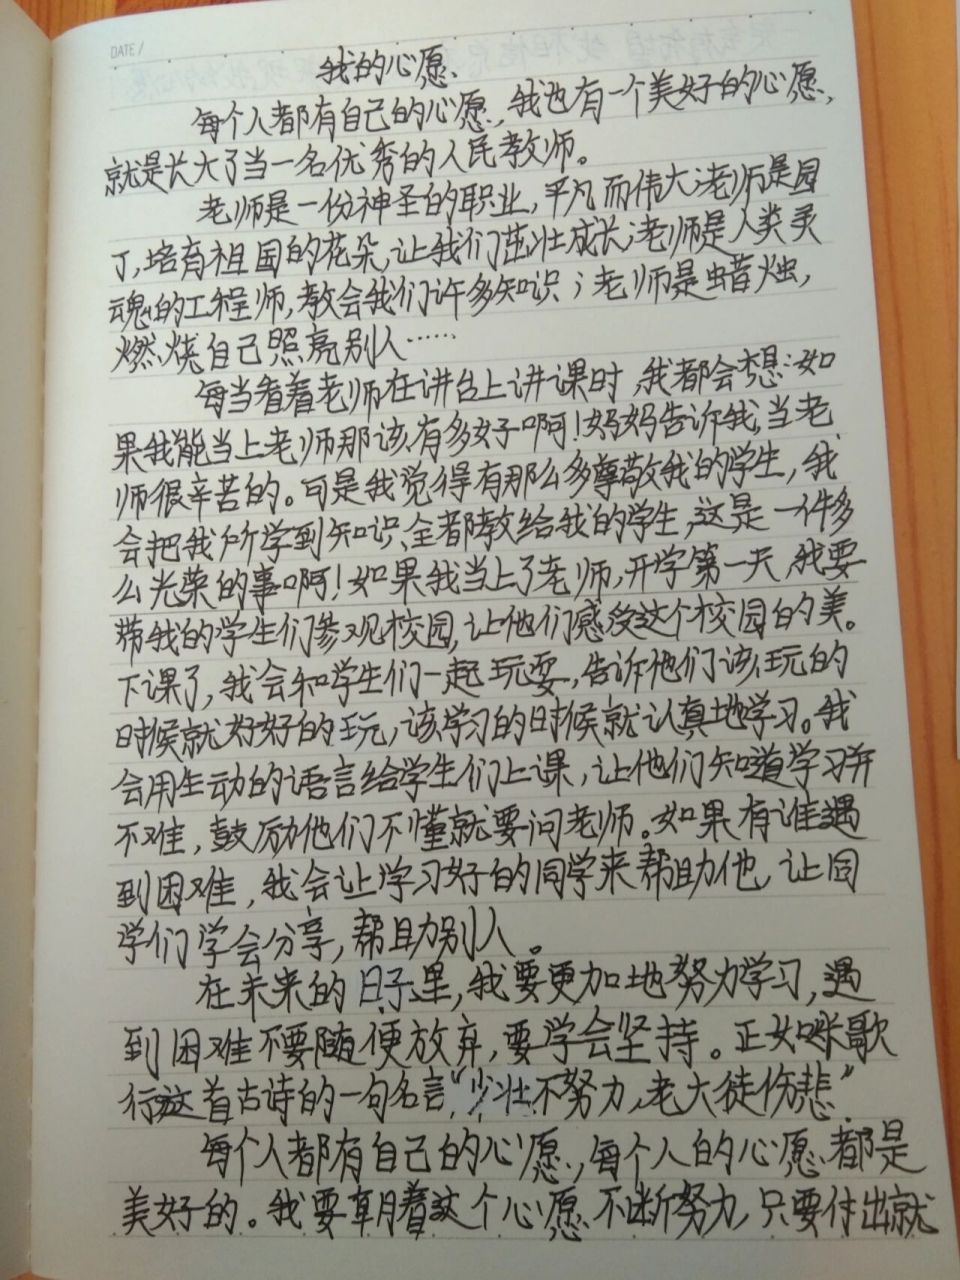 DATE /
我的心愿
每个人都有自己的心愿,我也有一个美好的心愿,
就是长大了当一名优秀的人民教师。
老师是一份神圣的职业,平凡而伟大;老师是园
丁,培育祖国的花朵,让我们茁壮成长;老师是人类灵
魂的工程师,教会我们许多知识;老师是蜡烛,
燃烧自己照亮别人……
每当看着老师在讲台上讲课时,我都会想:如
果我能当上老师那该有多好啊!妈妈告诉我,当老
师很辛苦的。可是我觉得有那么多尊敬我的学生,我
会把我所学到知识全都教给我的学生,这是一件多
么光荣的事啊!如果我当上了老师,开学第一天,我要
带我的学生们参观校园,让他们感受这个校园的美。
下课了,我会和学生们一起玩耍,告诉他们该玩的
时候就好好的玩,该学习的时候就认真地学习。我
会用生动的语言给学生们上课,让他们知道学习并
不难,鼓励他们不懂就要问老师。如果有谁遇
到困难,我会让学习好的同学来帮助他,让同
学们学会分享,帮助别人。
在未来的日子里,我要更加地努力学习,遇
到困难不要随便放弃,要学会坚持。正如咪歌
行这首古诗的一句名言,“少壮不努力,老大徒伤悲”
每个人都有自己的心愿,每个人的心愿都是
美好的。我要朝着这个心愿不断努力,只要付出就